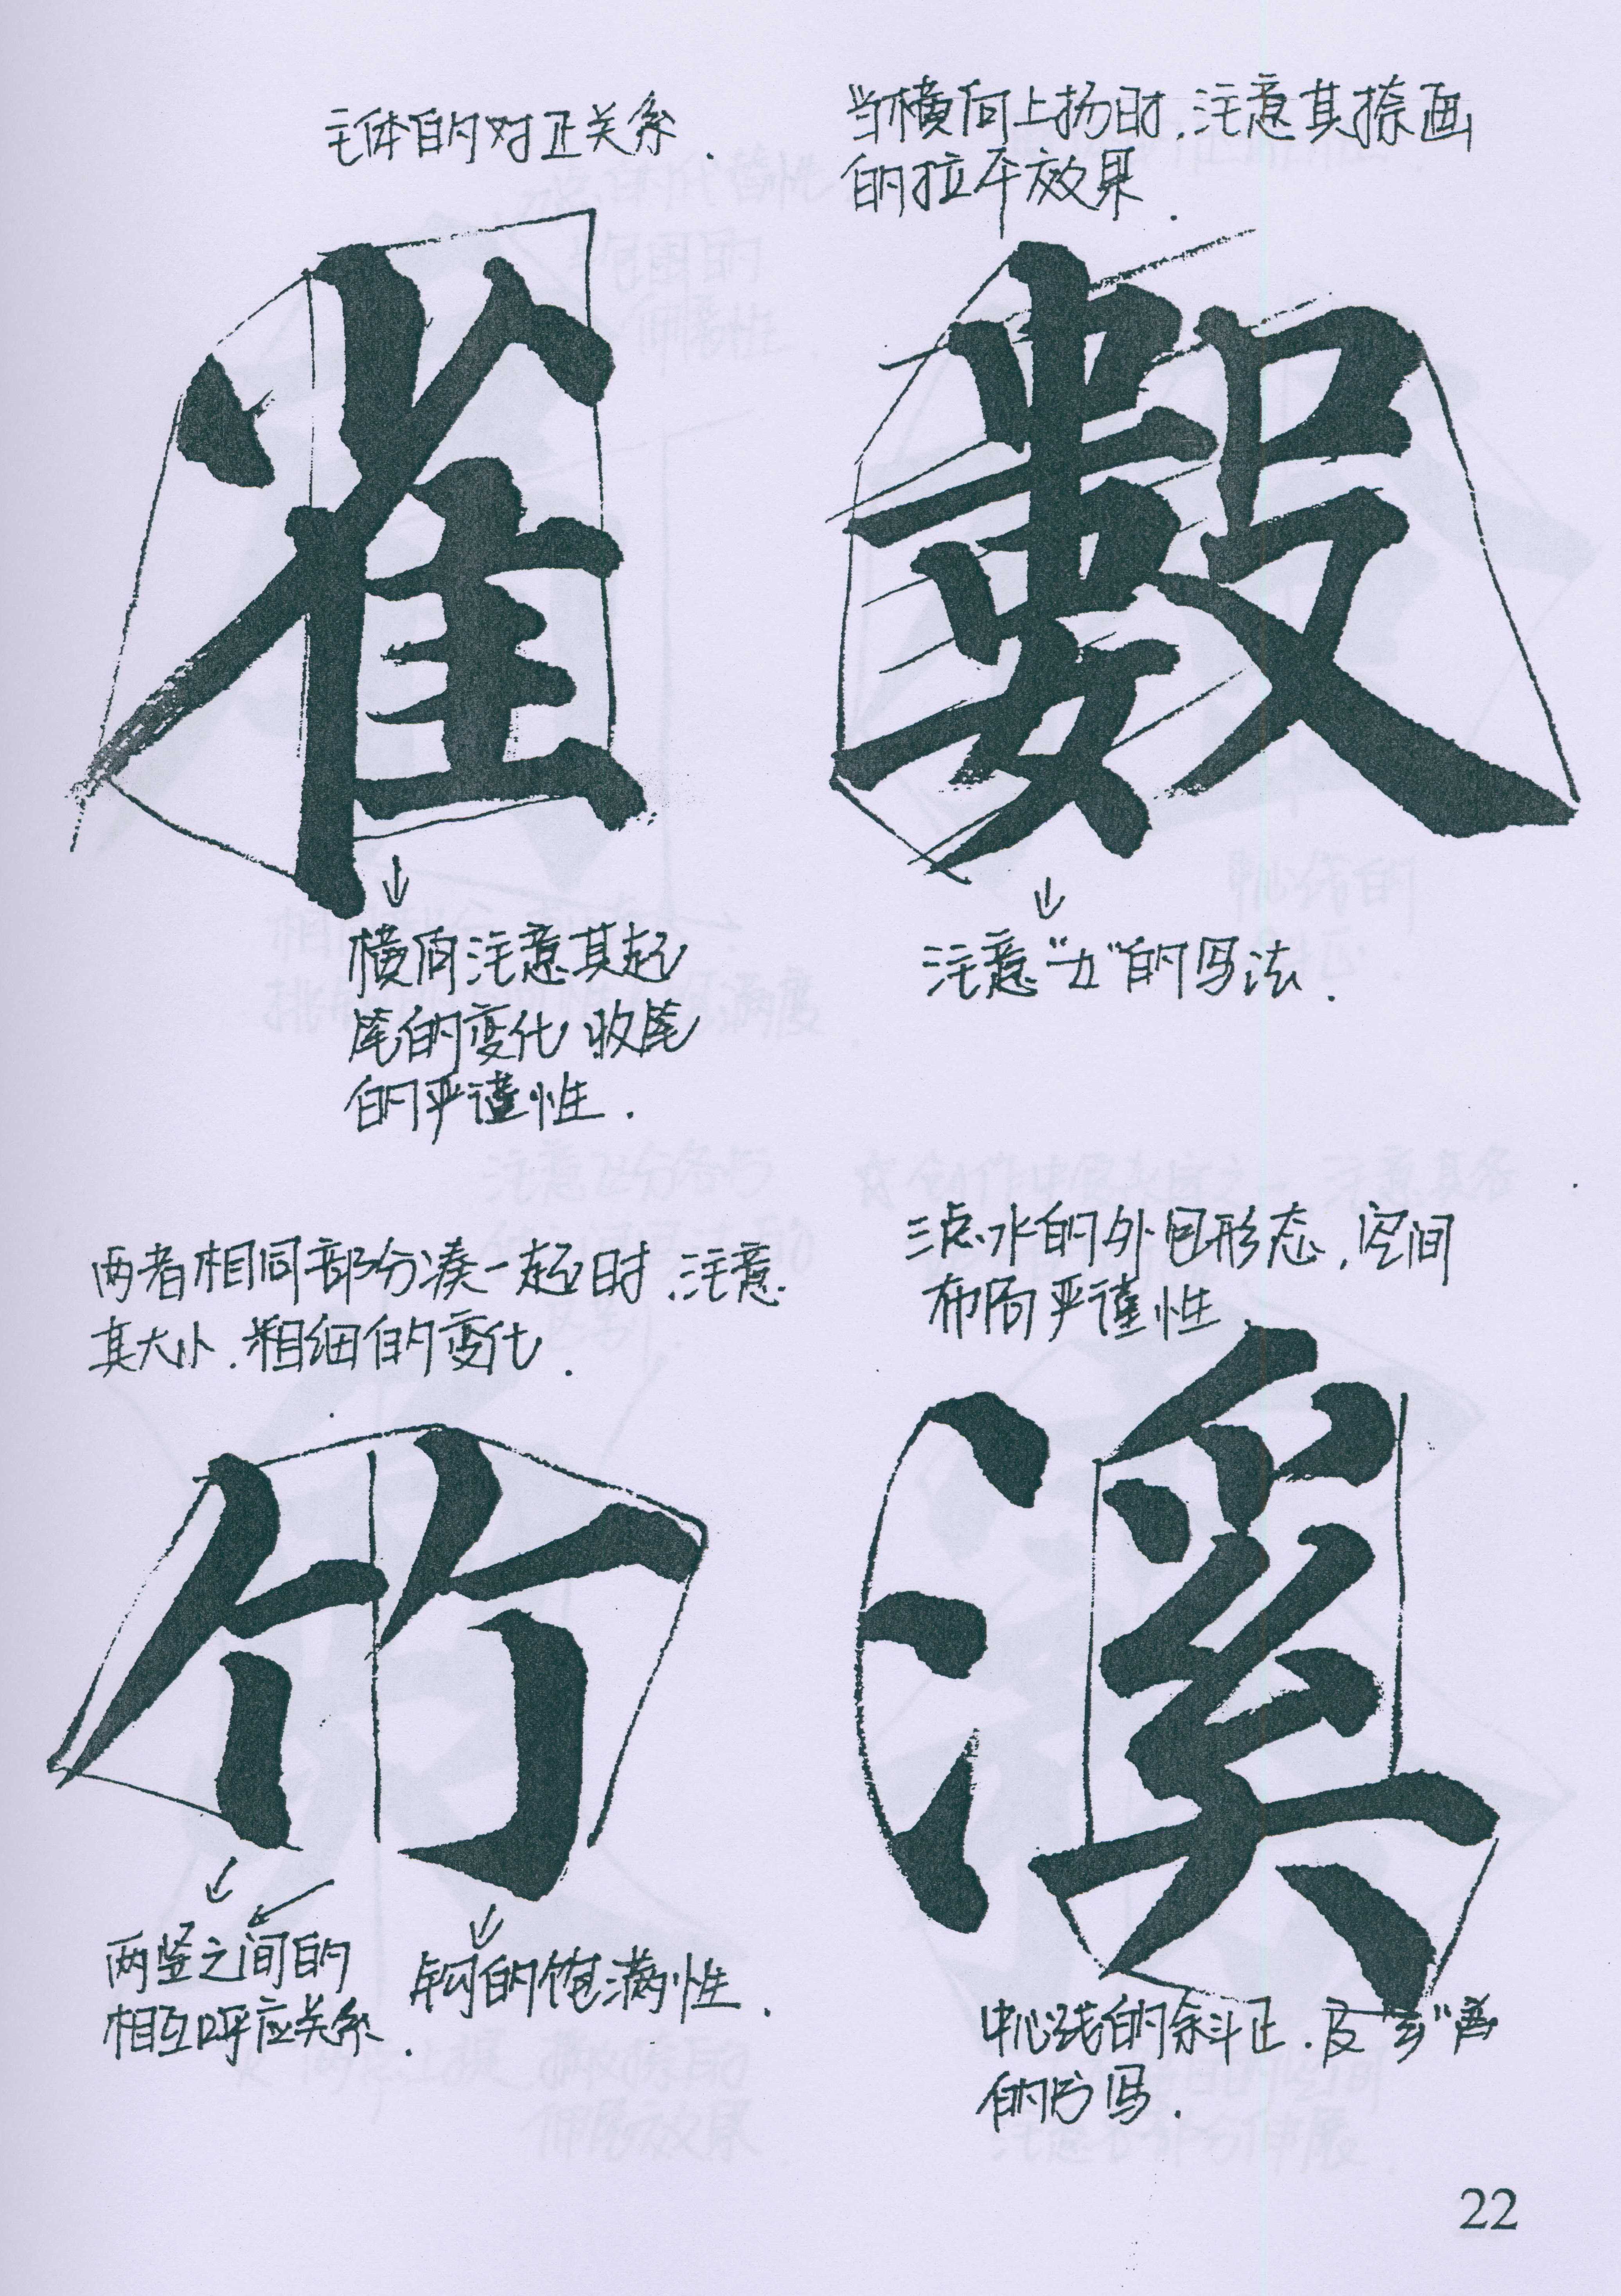 主体的对正关系.
雀
横向注意其起
尾的变化 收尾
的严谨性.
当横向上扬时,注意其捺画
的拉平效果.
數
注意“女”的写法.
两者相同部分凑一起时,注意
其大小.粗细的变化.
竹
两竖之间的
相互呼应关系.
钩的饱满性.
三点水的外包形态,空间
布局严谨性.
溪
中心线的斜正.及
的仿写.
22